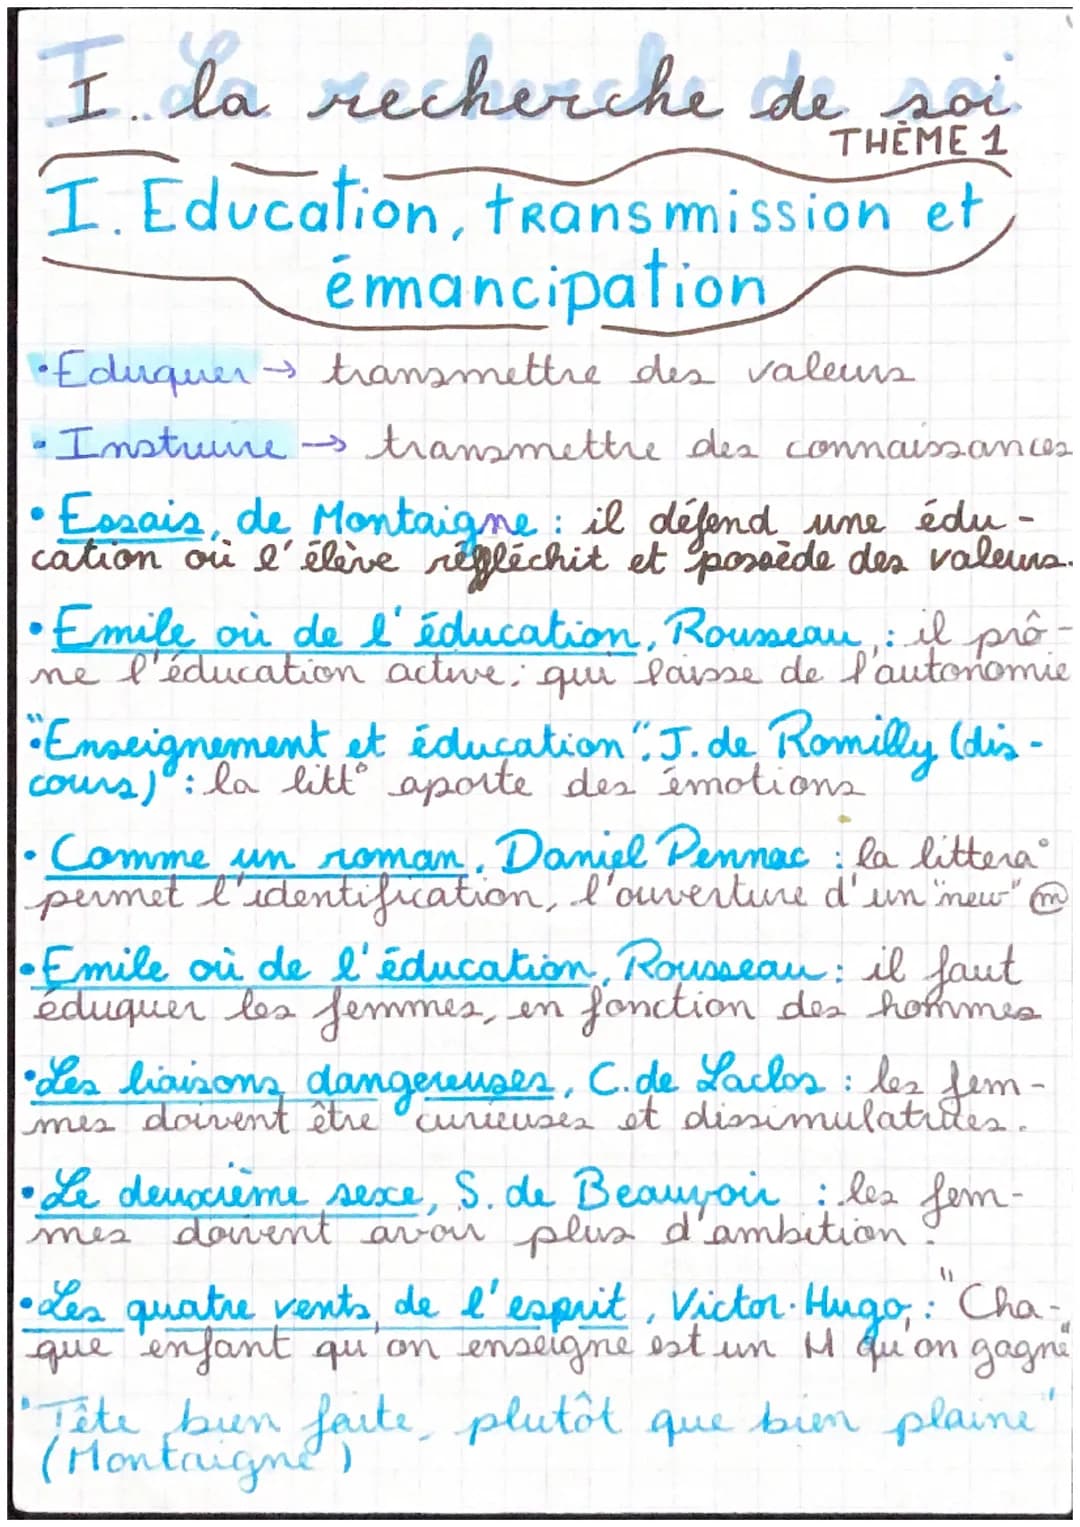 I. la recherche de soi
THÈME 1
I. Education, transmission et
émancipation
• Eduquer → transmettre des valeurs
• Instruire → transmettre des connaissances
• Essais, de Montaigne : il défend une édu-
cation où l'élève réfléchit et possède des valeurs.
• Emile où de l'éducation, Rousseau, : il prô-
ne l'éducation active; qui laisse de l'autonomie
• "Enseignement et éducation", J. de Romilly (dis-
cours) : la litt° aporte des émotions
• Comme un roman, Daniel Pennac : la littera°
permet l'identification, l'ouverture d'un "new" m
• Emile où de l'éducation, Rousseau : il faut
éduquer les femmes, en fonction des hommes
• Les liaisons dangereuses, C. de Laclos : les fem-
mes doivent être curieuses et dissimulatrices.
• Le deuxième sexe, S. de Beauvoir : les fem-
mes doivent avoir plus d'ambition.
• Les quatre vents de l'esprit, Victor Hugo, : "Cha-
que enfant qu'on enseigne est un M qu'on gagne"
"Tête bien faite, plutôt que bien plaine"
(Montaigne)